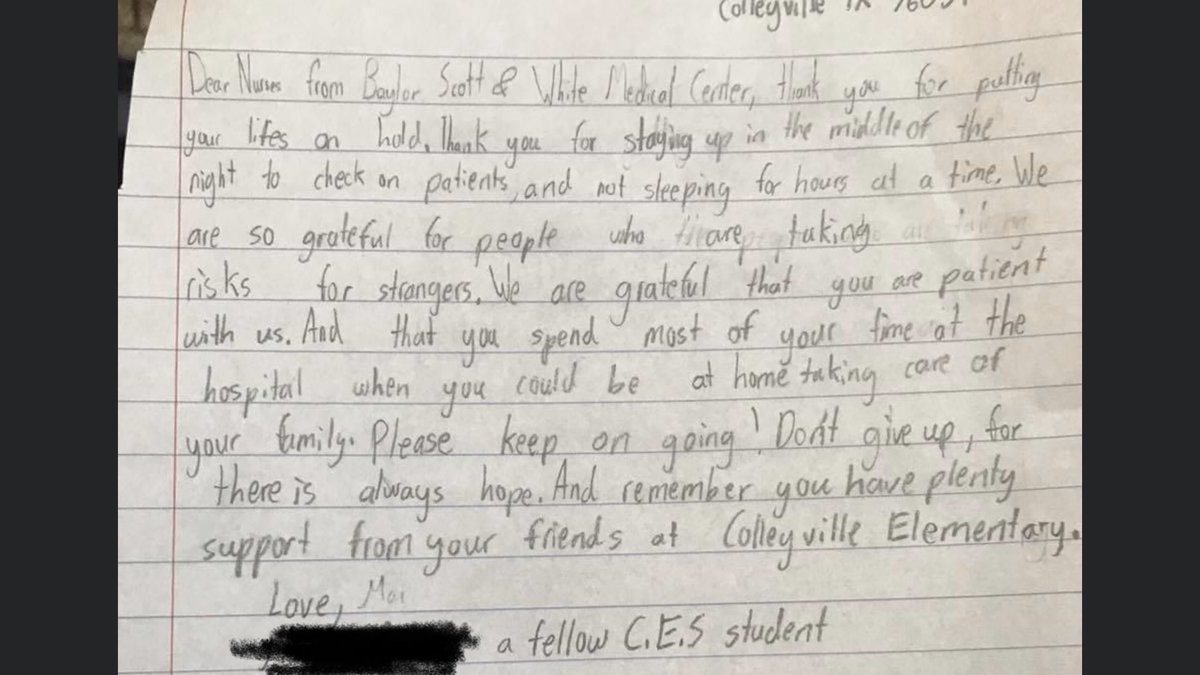 Colleyville TX
Dear Nurses from Baylor Scott & White Medical Center, thank you for putting
your lifes on hold. Thank you for staying up in the middle of the
night to check on patients, and not sleeping for hours at a time. We
are so grateful for people who are taking
risks for strangers. We are grateful that you are patient
with us. And that you spend most of your time at the
hospital when you could be at home taking care of
your family. Please keep on going! Don't give up, for
there is always hope. And remember you have plenty
support from your friends at Colleyville Elementary.
Love,
a fellow C.E.S student